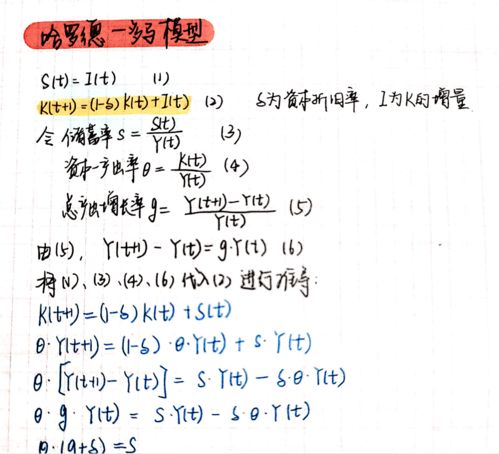 哈罗德-多马模型
S(t)=I(t) (1)
K(t+1)=(1-δ)K(t)+I(t) (2) δ为资本折旧率,I为K的增量
令储蓄率s=S(t)/Y(t) (3)
资本-产出率θ=K(t)/Y(t) (4)
总产出增长率g=Y(t+1)-Y(t)/Y(t) (5)
由(5),Y(t+1)-Y(t)=g·Y(t) (6)
将(1)、(3)、(4)、(6)代入(2)进行推导:
K(t+1)=(1-δ)K(t)+S(t)
θ·Y(t+1)=(1-δ)·θ·Y(t)+s·Y(t)
θ·[Y(t+1)-Y(t)]=s·Y(t)-δ·θ·Y(t)
θ·g·Y(t)=s·Y(t)-δ·θ·Y(t)
θ·(g+δ)=s